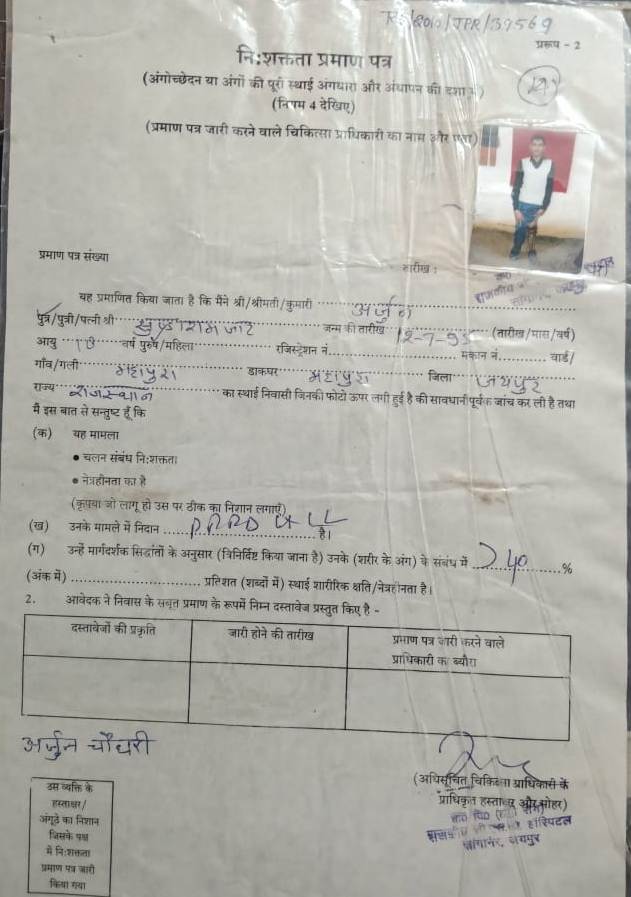 RJ/2010/JPR/39569
प्ररूप - 2
निःशक्तता प्रमाण पत्र
(अंगोच्छेदन या अंगों की पूरी स्थाई अंगघारा और अंधापन की दशा में)
(नियम 4 देखिए)
(प्रमाण पत्र जारी करने वाले चिकित्सा प्राधिकारी का नाम और पता)
प्रमाण पत्र संख्या
तारीख :
यह प्रमाणित किया जाता है कि मैंने श्री/श्रीमती/कुमारी अर्जुन
पुत्र/पुत्री/पत्नी श्री जाट जन्म की तारीख 12-7-95 (तारीख/मास/वर्ष)
आयु वर्ष पुरुष/महिला रजिस्ट्रेशन नं. मकान नं. वार्ड/
गाँव/गली महापुरा डाकघर महापुरा जिला जयपुर
राज्य राजस्थान का स्थाई निवासी जिनकी फोटो ऊपर लगी हुई है की सावधानी पूर्वक जांच कर ली है तथा
मैं इस बात से सन्तुष्ट हूँ कि
(क) यह मामला
● चलन संबंध निःशक्तता
● नेत्रहीनता का है
(कृपया जो लागू हो उस पर ठीक का निशान लगाएं)
(ख) उनके मामले में निदान PPRP है।
(ग) उन्हें मार्गदर्शक सिद्धांतों के अनुसार (विनिर्दिष्ट किया जाना है) उनके (शरीर के अंग) के संबंध में 40 %
(अंक में) प्रतिशत (शब्दों में) स्थाई शारीरिक क्षति/नेत्रहीनता है।
2. आवेदक ने निवास के सबूत प्रमाण के रूपमें निम्न दस्तावेज प्रस्तुत किए है -
दस्तावेजों की प्रकृति
जारी होने की तारीख
प्रमाण पत्र जारी करने वाले
प्राधिकारी का ब्यौरा
अर्जुन चौधरी
(अधिसूचित चिकित्सा प्राधिकारी के
प्राधिकृत हस्ताक्षर और मोहर)
हॉस्पिटल
सांगानेर, जयपुर
उस व्यक्ति के
हस्ताक्षर/
अंगूठे का निशान
जिसके पक्ष
में निःशक्तता
प्रमाण पत्र जारी
किया गया